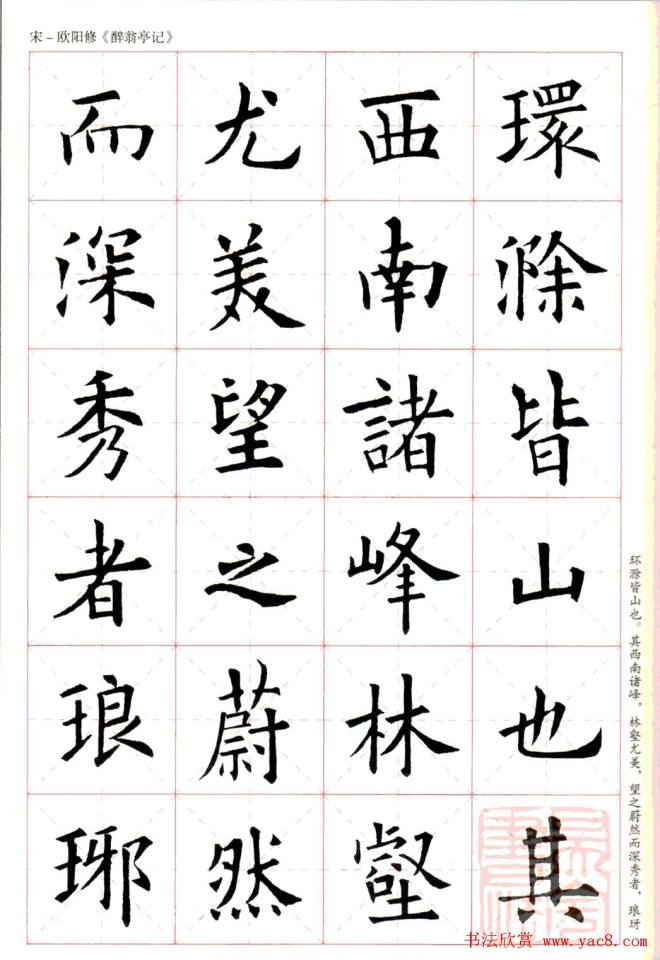 宋－欧阳修《醉翁亭记》
環滁皆山也其
西南諸峰林壑
尤美望之蔚然
而深秀者琅琊
环滁皆山也。其西南诸峰，林壑尤美，望之蔚然而深秀者，琅玡
书法欣赏 www.yac8.com